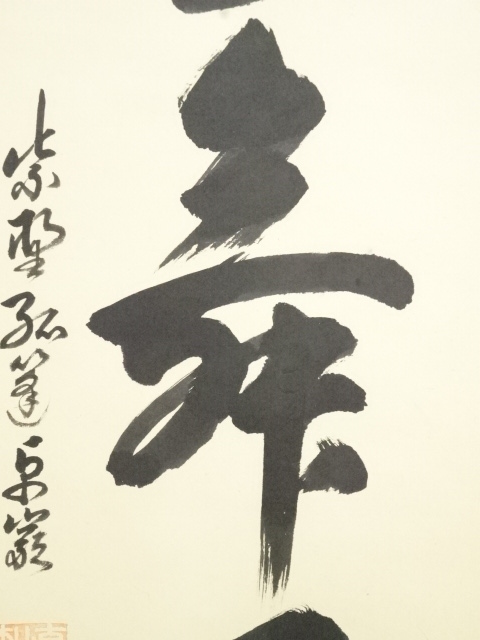 舞
紫野孤篷卓巖